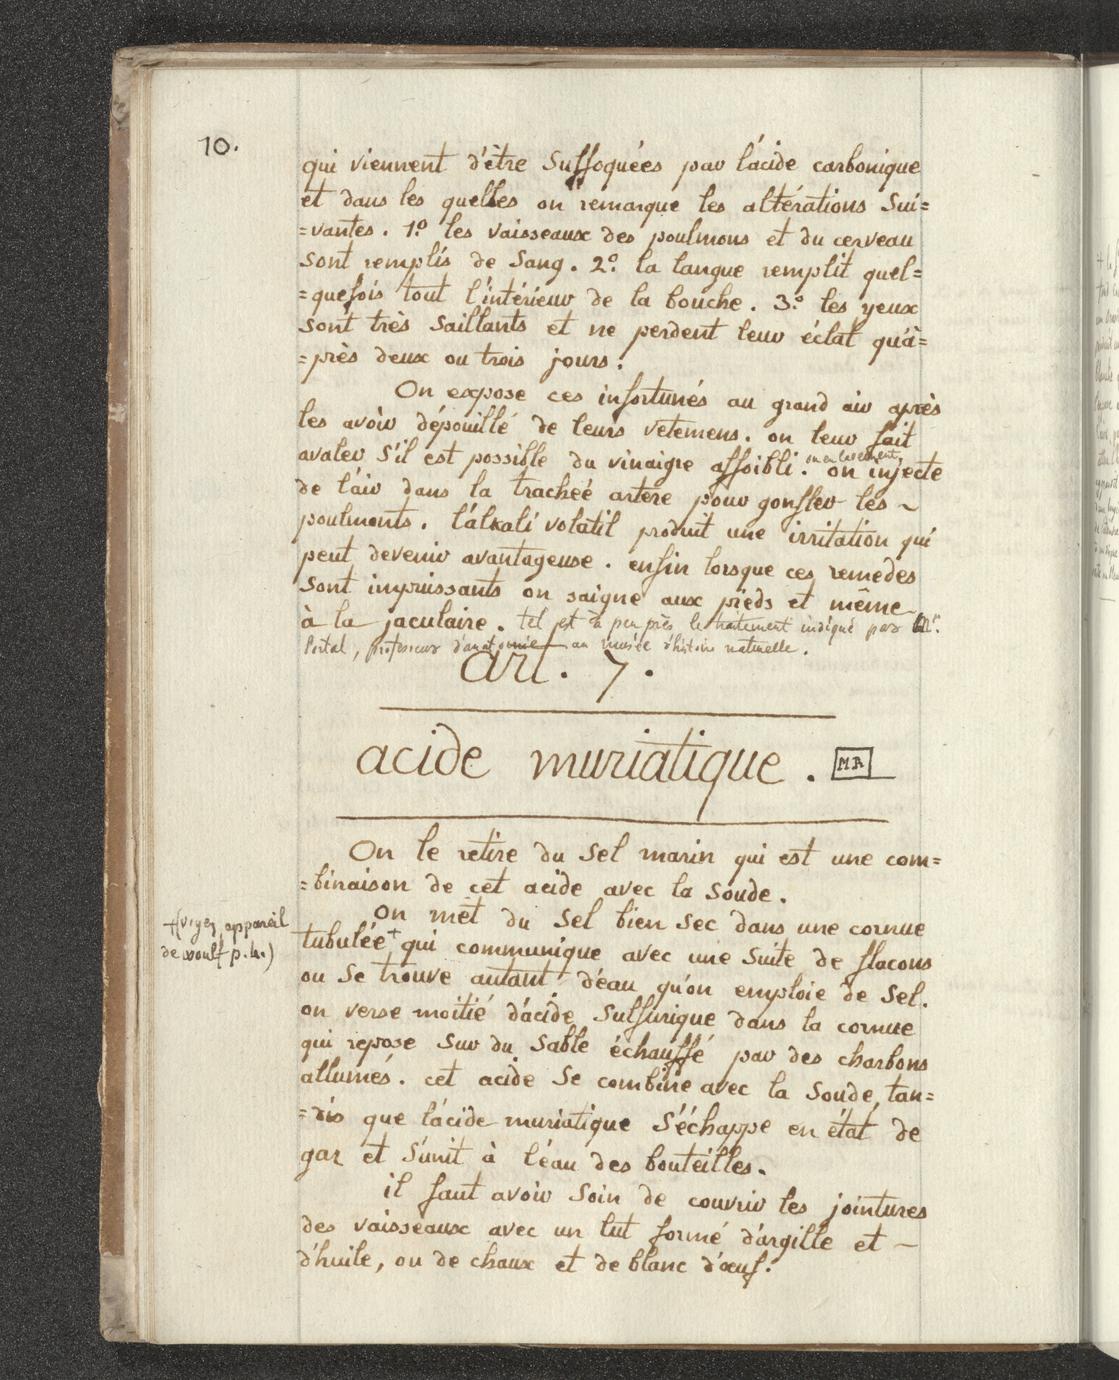 10.
qui viennent d'être Suffoquées par l'acide carbonique
et dans les quelles on remarque les altérations Sui=
=vantes. 1.º les vaisseaux des poulmons et du cerveau
Sont remplis de Sang. 2.º la langue remplit quel=
=quefois tout l'intérieur de la bouche. 3.º les yeux
Sont très Saillants et ne perdent leur éclat qu'a=
=près deux ou trois jours.
On expose ces infortunés au grand air après
les avoir dépouillé de leurs vetemens. on leur fait
avaler S'il est possible du vinaigre affoibli. ou en lavement, on injecte
de l'air dans la tracheé artere pour gonfler les ~
poulmonts. l'alkali volatil produit une irritation qui
peut devenir avantageuse. enfin lorsque ces remedes
Sont impuissants on saigne aux pieds et même
à la jaculaire. tel est à peu près le traitement indiqué par Mr.
Portal, professeur d'anatomie au musée d'histoire naturelle.
art. 7.
acide muriatique. MR
On le retire du Sel marin qui est une com=
=binaison de cet acide avec la Soude.
On met du Sel bien Sec dans une cornue
+(voyez appareil
de woulf p. 4.)
tubulée + qui communique avec une Suite de flacons
ou Se trouve autant d'eau qu'on emploie de Sel.
on verse moitié d'acide Sulfurique dans la cornue
qui repose Sur du Sable échauffé par des charbons
allumés. cet acide Se combine avec la Soude, tan=
=dis que l'acide muriatique S'échappe en état de
gaz et S'unit à l'eau des bouteilles.
il faut avoir Soin de couvrir les jointures
des vaisseaux avec un lut formé d'argille et ~
d'huile, ou de chaux et de blanc d'œuf.